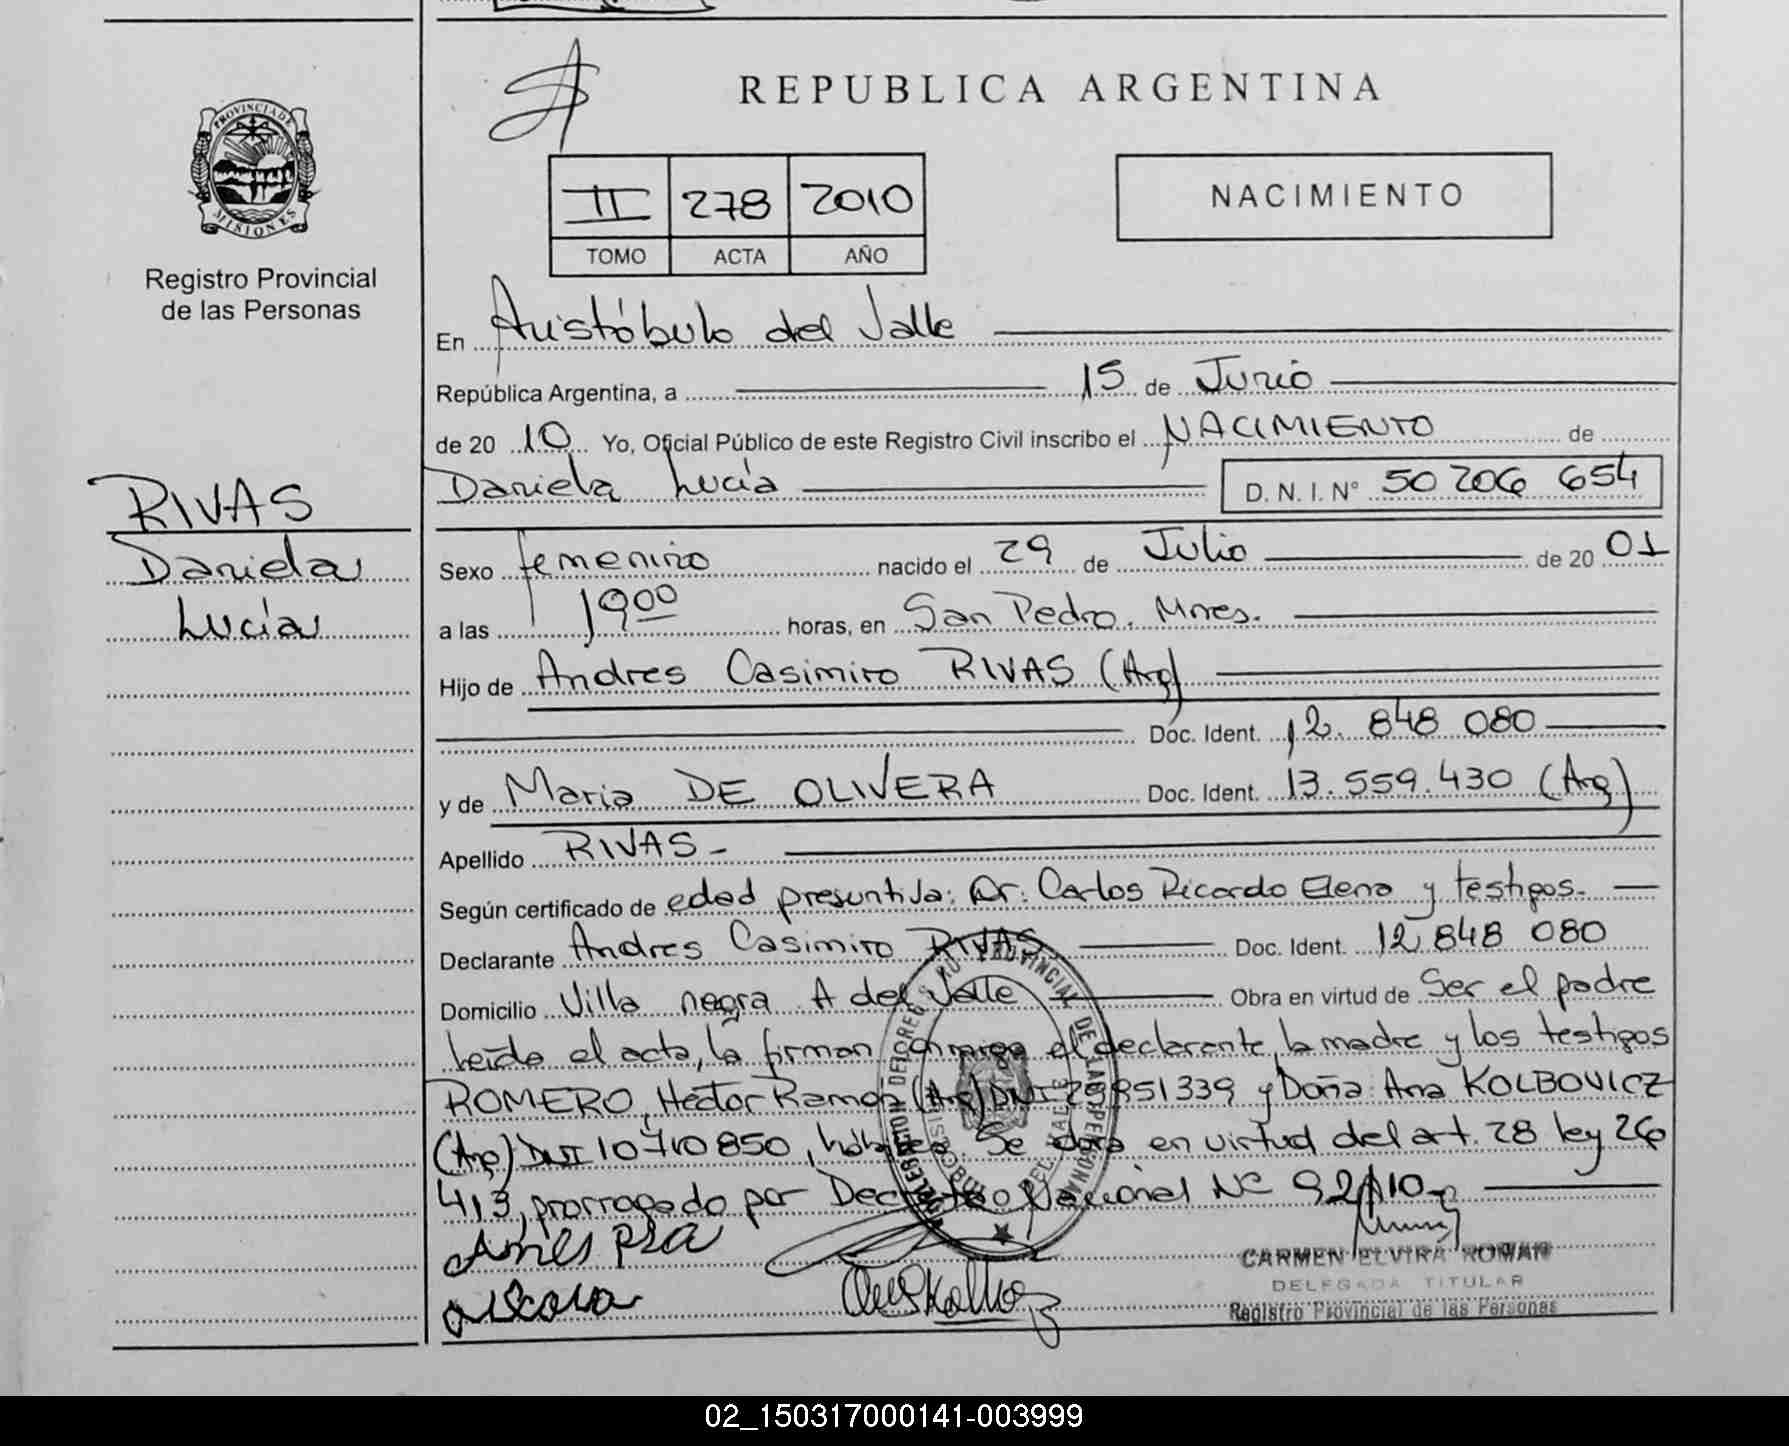 REPUBLICA ARGENTINA
PROVINCIA DE
MISIONES
Registro Provincial
de las Personas
II 278 2010
TOMO ACTA AÑO
NACIMIENTO
En Aristóbulo del Valle
República Argentina, a 15 de Junio
de 20 10 Yo, Oficial Público de este Registro Civil inscribo el NACIMIENTO de
Daniela Lucía D. N. I. Nº 50 206 654
RIVAS
Daniela
Lucía
Sexo femenino nacido el 29 de Julio de 20 01
a las 19 00 horas, en San Pedro. Mnes.
Hijo de Andres Casimiro RIVAS (Arg)
Doc. Ident. 12. 848 080
y de Maria DE OLIVERA Doc. Ident. 13.559.430 (Arg)
Apellido RIVAS -
Según certificado de edad presuntiva: Dr: Carlos Ricardo Elena y testigos.
Declarante Andres Casimiro RIVAS Doc. Ident. 12 848 080
Domicilio Villa negra A del Valle Obra en virtud de Ser el padre
Leída el acta, la firman conmigo el declarante, la madre y los testigos
ROMERO, Héctor Ramón (Arg) DNI 951339 y Doña: Ana KOLBOVICZ
(Arg) DNI 10710850, hábiles. Se obra en virtud del art. 28 ley 26
413, prorrogado por Decreto Nacional Nº 92/10-
CARMEN ELVIRA ROMAN
DELEGADA TITULAR
Registro Provincial de las Personas
02_150317000141-003999